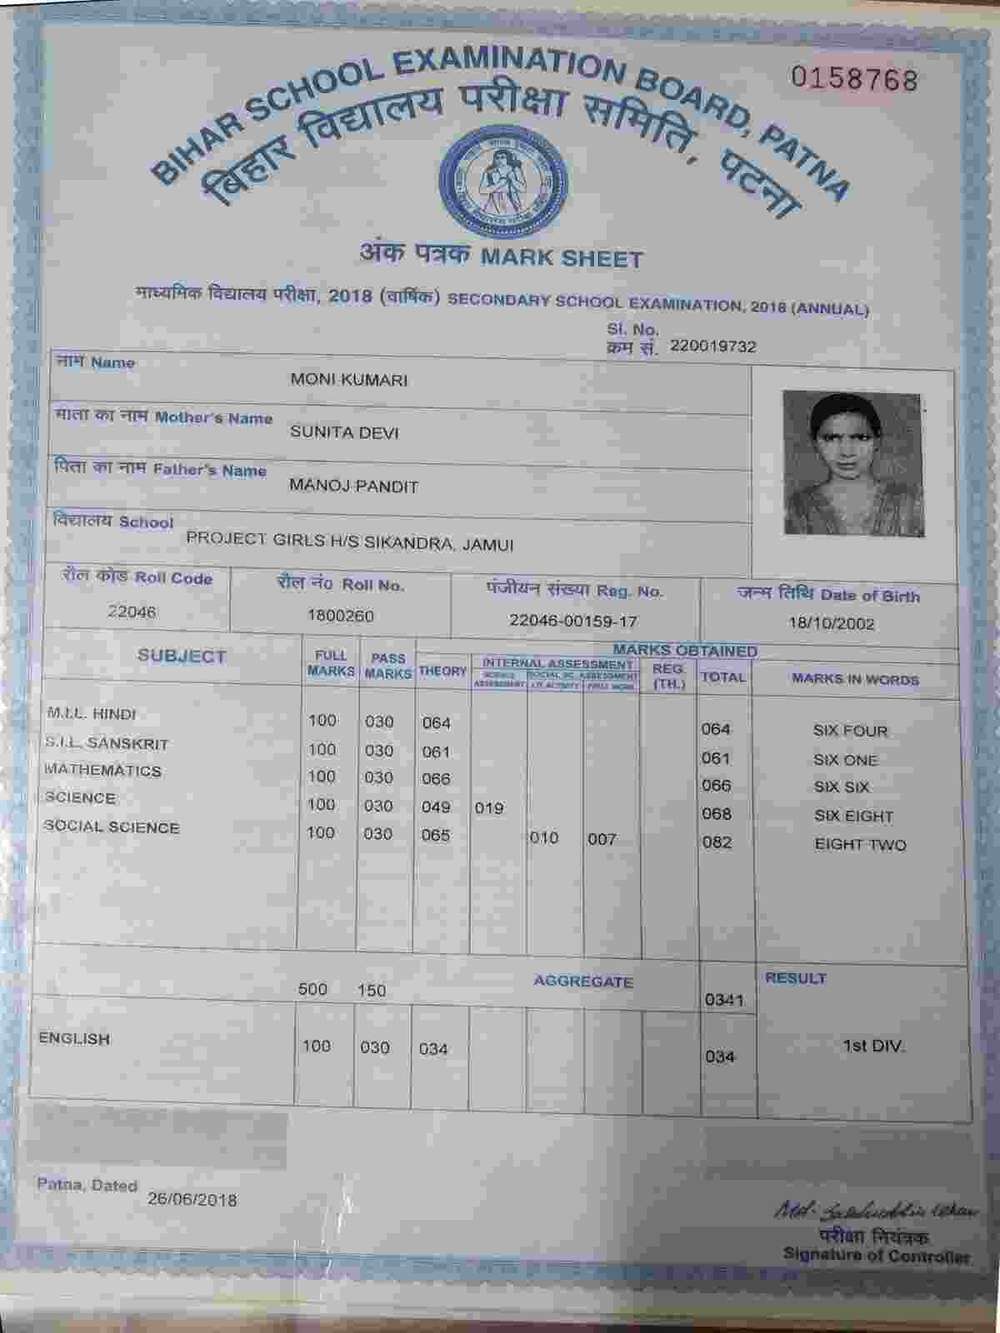 0158768
BIHAR SCHOOL EXAMINATION BOARD, PATNA
बिहार विद्यालय परीक्षा समिति, पटना
अंक पत्रक MARK SHEET
माध्यमिक विद्यालय परीक्षा, 2018 (वार्षिक) SECONDARY SCHOOL EXAMINATION, 2018 (ANNUAL)
Sl. No.
क्रम सं. 220019732
नाम Name
MONI KUMARI
माता का नाम Mother's Name
SUNITA DEVI
पिता का नाम Father's Name
MANOJ PANDIT
विद्यालय School
PROJECT GIRLS H/S SIKANDRA, JAMUI
रौल कोड Roll Code रौल नं० Roll No. पंजीयन संख्या Reg. No. जन्म तिथि Date of Birth
22046 1800260 22046-00159-17 18/10/2002
MARKS OBTAINED
SUBJECT FULL MARKS PASS MARKS THEORY INTERNAL ASSESSMENT REG. (TH.) TOTAL MARKS IN WORDS
M.I.L. HINDI 100 030 064 064 SIX FOUR
S.I.L. SANSKRIT 100 030 061 061 SIX ONE
MATHEMATICS 100 030 066 066 SIX SIX
SCIENCE 100 030 049 019 068 SIX EIGHT
SOCIAL SCIENCE 100 030 065 010 007 082 EIGHT TWO
500 150 AGGREGATE 0341 RESULT
ENGLISH 100 030 034 034 1st DIV.
Patna, Dated 26/06/2018
परीक्षा नियंत्रक
Signature of Controller